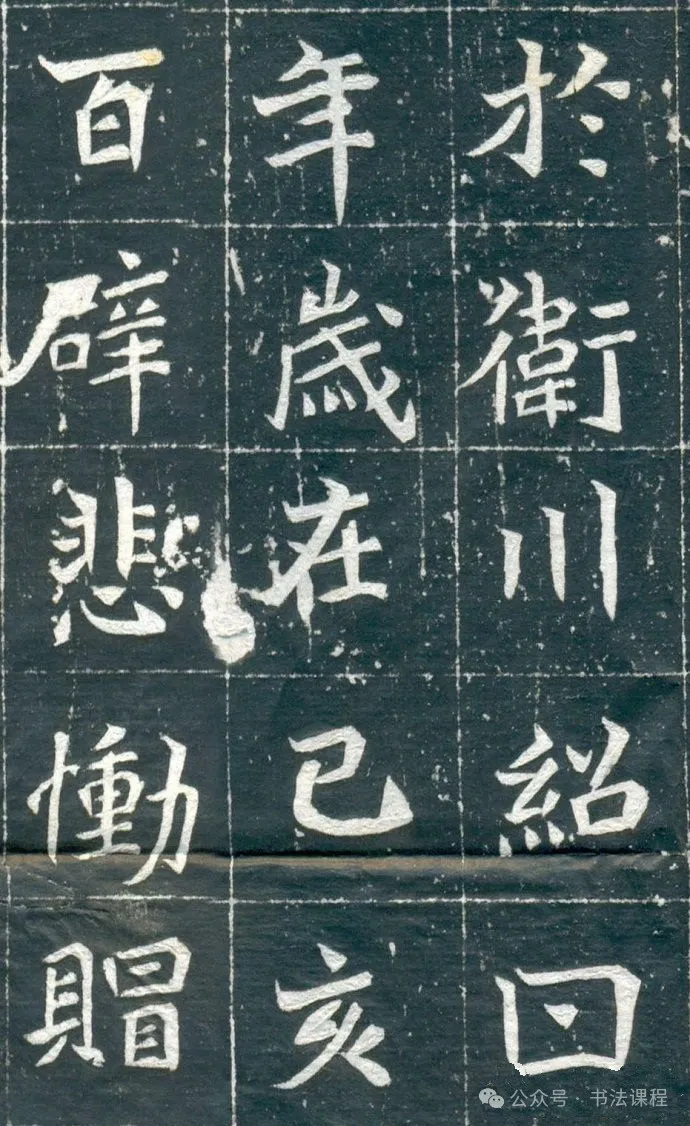 於衛川紹曰
年歲在己亥
百辟悲慟賵
公众号·书法课程